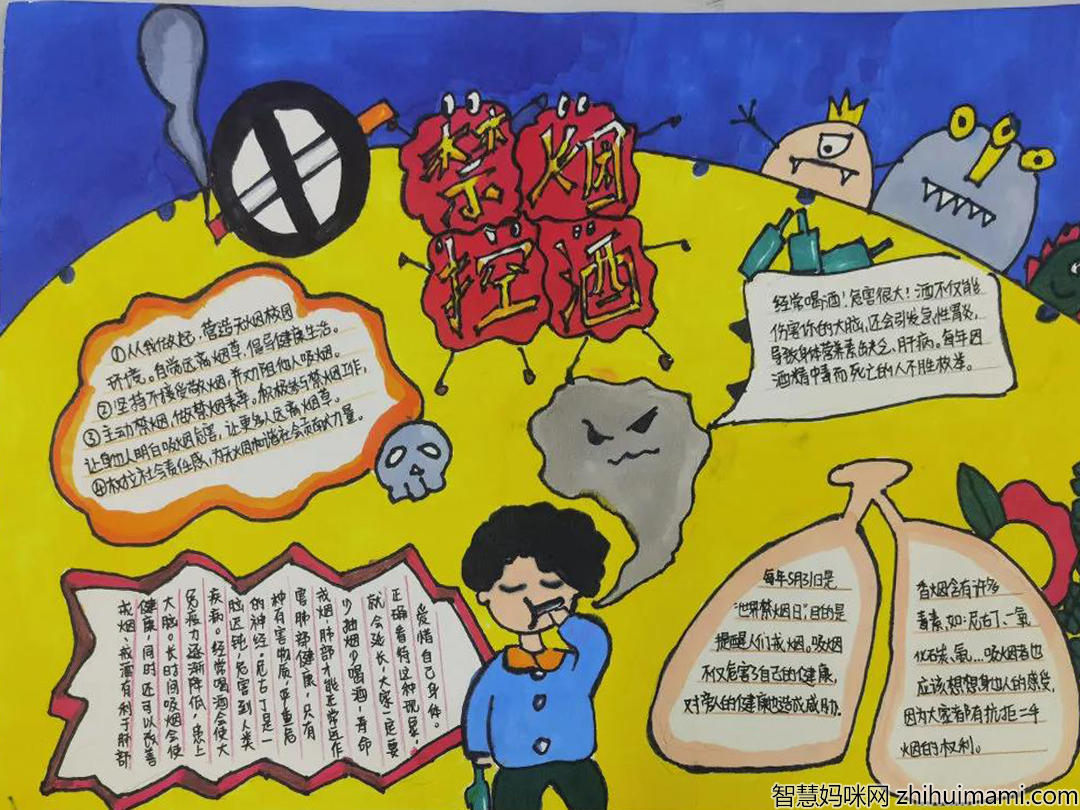 禁烟
控酒
①从我做起,营造无烟校园
环境。自觉远离烟草,倡导健康生活。
②坚持不接受敬烟,并劝阻他人吸烟。
③主动禁烟,做禁烟表率。积极参与禁烟工作,
让身边人明白吸烟危害,让更多人远离烟草。
④树立社会责任感,为无烟和谐社会贡献力量。
经常喝酒!危害很大!酒不仅能
伤害你的大脑,还会引发急性胃炎,
导致身体营养素缺乏、肝病。每年因
酒精中毒而死亡的人不胜枚举。
戒烟、戒酒有利于肺部
健康,同时还可以改善
大脑。长时间吸烟会使
免疫力逐渐降低,患上
疾病。经常喝酒会使大
脑迟钝,危害到人类
的神经,尼古丁是
种有害物质,严重危
害肺部健康,只有
戒烟,肺部才能正常运作
少抽烟少喝酒,寿命
就会延长,大家一定要
正确看待这种现象。
爱惜自己身体。
每年5月31日是
“世界禁烟日”,目的是
提醒人们戒烟。吸烟
不仅危害了自己的健康,
对旁人的健康也造成威胁。
香烟含有许多
毒素,如:尼古丁、一氧
化碳、氨...吸烟者也
应该想想身边人的感受,
因为大家都有抗拒二手
烟的权利。
智慧妈咪网 zhihuimami.com